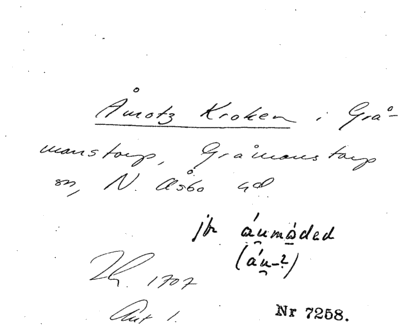 Åmotz Kroken i Grå-
manstorp, Gråmanstorp
sn, N. Åsbo hd
jfr áumåded
(áu-?)
1707
Nr 7258.